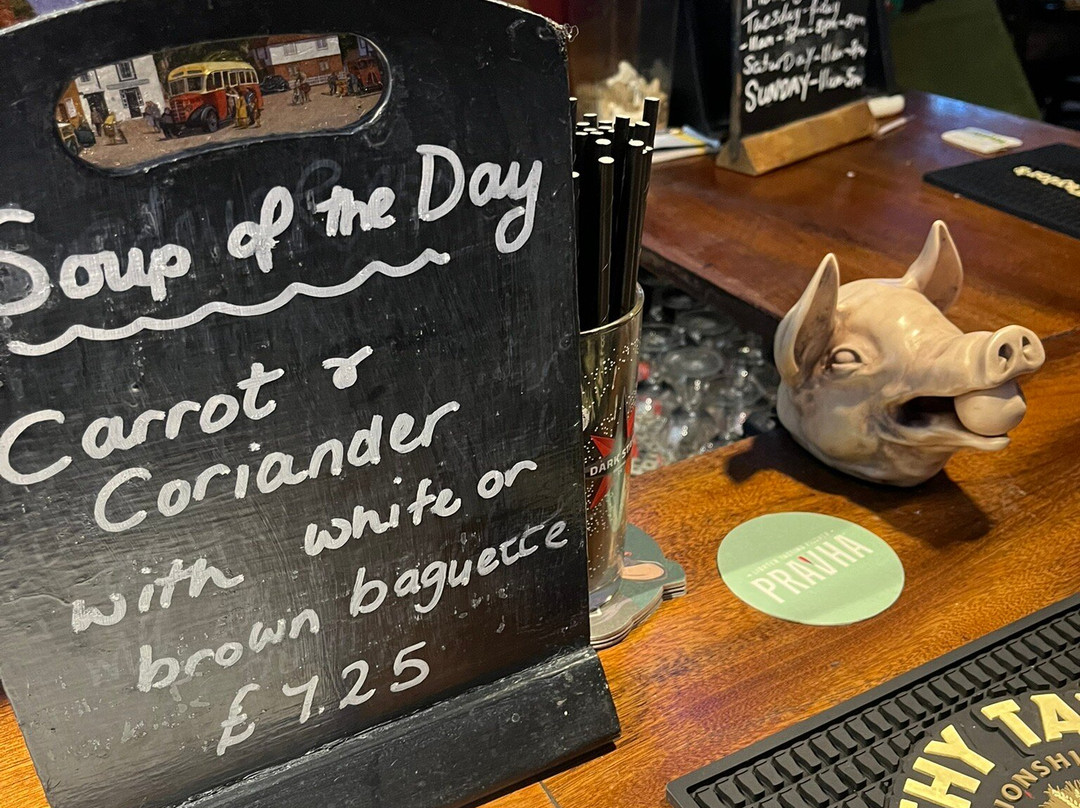 Soup of the Day
Carrot &
Coriander
with white or
brown baguette
£7.25
Tuesday-Friday
SaturDay-11am-
SUNDAY-11am-5pm
DARK ST
PRAVHA
HY TA
ONSHI